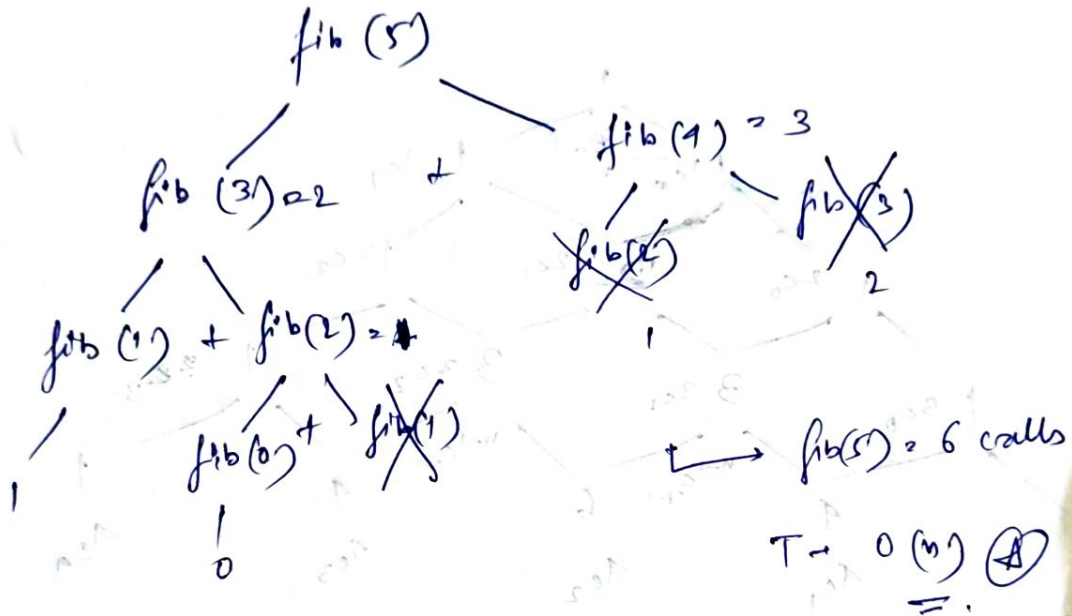 fib (5)
fib (3) = 2 + fib (4) = 3
fib (2) fib (3)
1 2
fib (1) + fib (2) = 1
fib (0) + fib (1)
1 0
fib(5) = 6 calls
T → O (n) A